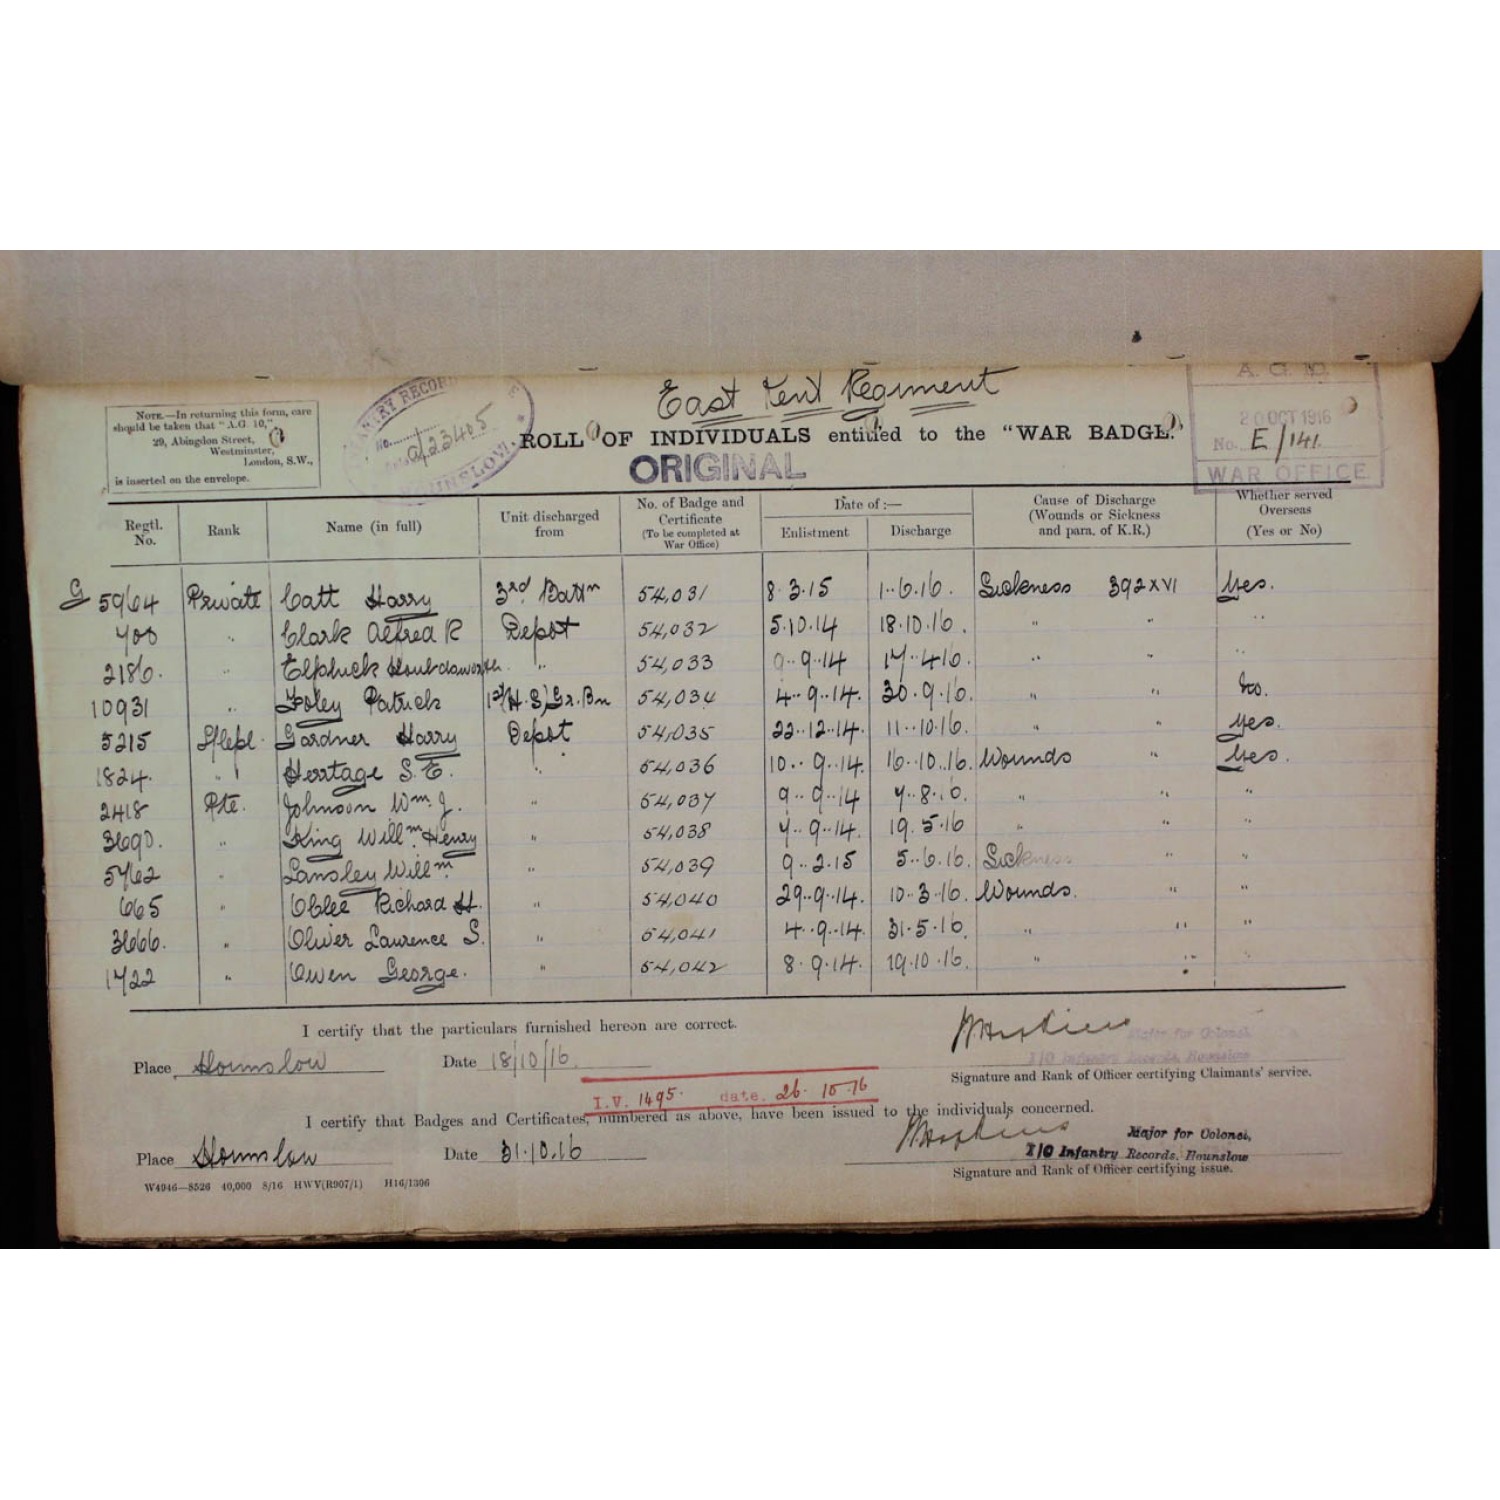 East Kent Regiment
A. G. 10.
20 OCT 1916
No. E/141.
WAR OFFICE
No.
a/23405
HOUNSLOW.
NOTE.—In returning this form, care
should be taken that "A.G. 10,"
29, Abingdon Street,
Westminster,
London, S.W.,
is inserted on the envelope.
ROLL OF INDIVIDUALS entitled to the "WAR BADGE."
ORIGINAL
Regtl. No. Rank Name (in full) Unit discharged from No. of Badge and Certificate (To be completed at War Office) Date of :— Enlistment Discharge Cause of Discharge (Wounds or Sickness and para. of K.R.) Whether served Overseas (Yes or No)
G 5964 Private Catt Harry 3rd Battn 54,031 8.3.15 1..6.16. Sickness 392 XVI Yes.
700 " Clark Alfred R Depot 54,032 5.10.14 18.10.16. " " "
2186. " Elphick Houldsworth. " 54,033 9..9.14 17..4.16. " " "
10931 " Foley Patrick 1st (H.S) Gr. Bn 54,034 4..9.14. 30.9.16. " " No.
5215 Depot 54,035 Gardner Harry 22..12.14. 11..10.16. " " yes.
1824. " Herrtage S. E. " 54,036 10..9.14. 16..10..16. Wounds " Yes.
2418 Pte. Johnson Wm. J. " 54,037 9..9..14 7..8.16. " " "
3690. " King Willm. Henry " 54,038 7..9..14. 19.5.16 " " "
5762 " Lansley Willm " 54,039 9..2.15 5..6.16. Sickness " "
665 " Oblee Richard H. " 54,040 29..9..14. 10..3.16. Wounds. " "
3666. " Oliver Laurence S. " 54,041 4..9..14. 31.5.16. " " "
1722 " Owen George. " 54,042 8.9.14. 19.10.16. " "
I certify that the particulars furnished hereon are correct.
Place Hounslow Date 18/10/16.
Major for Colonel
I/O Infantry Records, Hounslow
Signature and Rank of Officer certifying Claimants' service.
I.V. 1495. date. 26.10.16
I certify that Badges and Certificates, numbered as above, have been issued to the individuals concerned.
Place Hounslow Date 31.10.16
Major for Colonel,
I/O Infantry Records, Hounslow
Signature and Rank of Officer certifying issue.
W4946—8526 40,000 8/16 HWV(R907/1) H16/1306